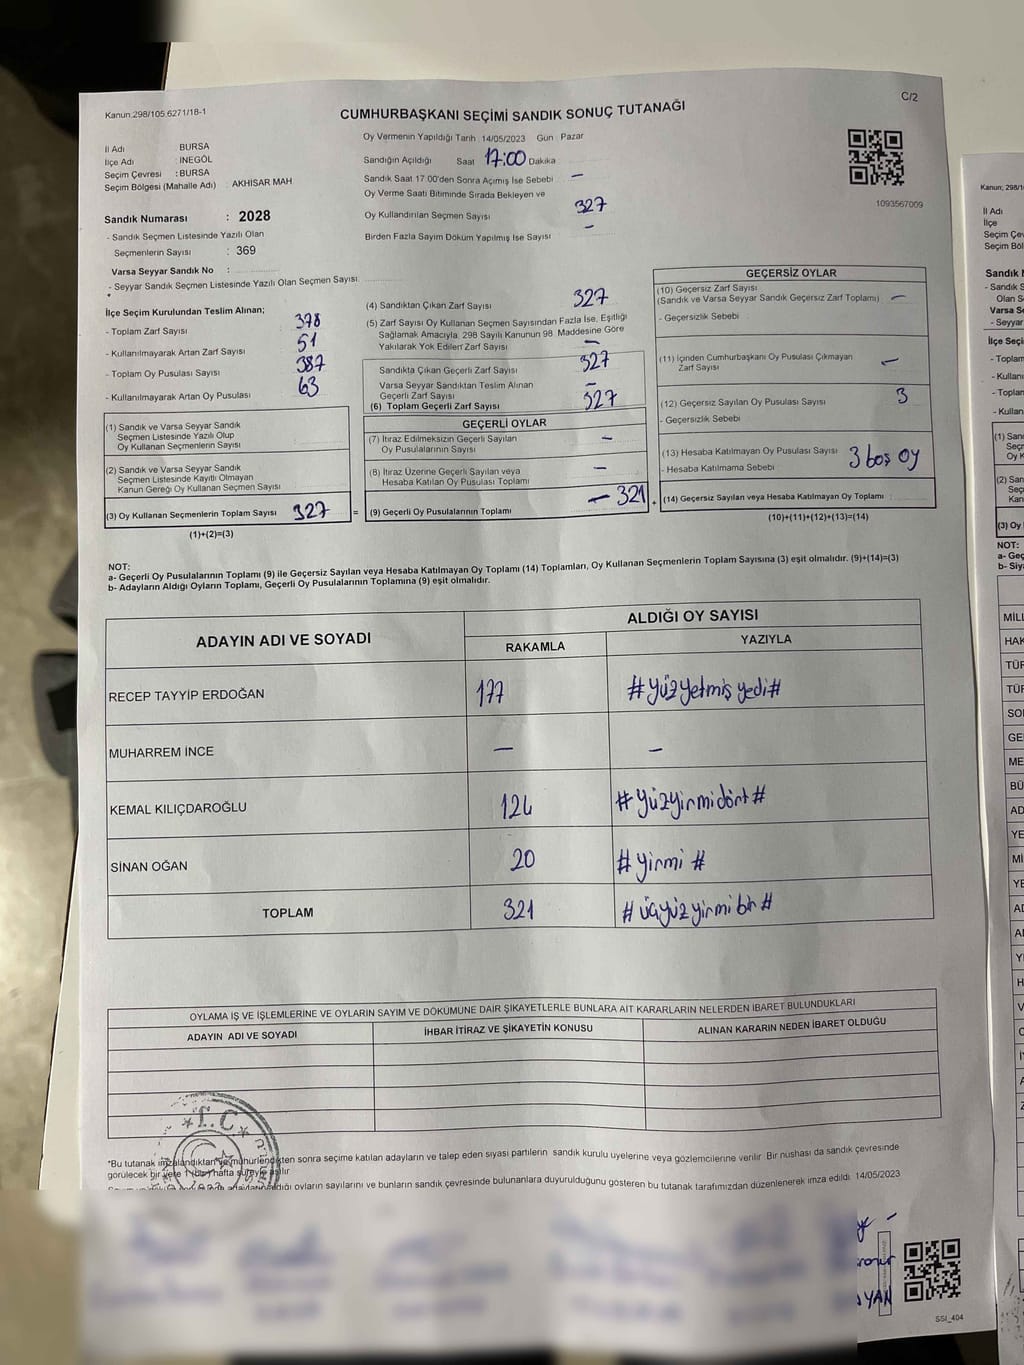 Kanun:298/105.6271/18-1
C/2
CUMHURBAŞKANI SEÇİMİ SANDIK SONUÇ TUTANAĞI
Oy Vermenin Yapıldığı Tarih 14/05/2023 Gün Pazar
İl Adı : BURSA
İlçe Adı : İNEGÖL
Seçim Çevresi : BURSA
Seçim Bölgesi (Mahalle Adı) : AKHİSAR MAH
Sandığın Açıldığı Saat 17:00 Dakika
Sandık Saat 17.00'den Sonra Açımış İse Sebebi —
Oy Verme Saati Bitiminde Sırada Bekleyen ve
Oy Kullandırılan Seçmen Sayısı 327
Birden Fazla Sayım Döküm Yapılmış İse Sayısı —
1093567009
Sandık Numarası : 2028
- Sandık Seçmen Listesinde Yazılı Olan
Seçmenlerin Sayısı : 369
Varsa Seyyar Sandık No :
- Seyyar Sandık Seçmen Listesinde Yazılı Olan Seçmen Sayısı
İlçe Seçim Kurulundan Teslim Alınan;
- Toplam Zarf Sayısı 378
- Kullanılmayarak Artan Zarf Sayısı 51
- Toplam Oy Pusulası Sayısı 387
- Kullanılmayarak Artan Oy Pusulası 63
(1) Sandık ve Varsa Seyyar Sandık
Seçmen Listesinde Yazılı Olup
Oy Kullanan Seçmenlerin Sayısı
(2) Sandık ve Varsa Seyyar Sandık
Seçmen Listesinde Kayıtlı Olmayan
Kanun Gereği Oy Kullanan Seçmen Sayısı
(3) Oy Kullanan Seçmenlerin Toplam Sayısı 327 =
(1)+(2)=(3)
(4) Sandıktan Çıkan Zarf Sayısı 327
(5) Zarf Sayısı Oy Kullanan Seçmen Sayısından Fazla İse, Eşitliği
Sağlamak Amacıyla, 298 Sayılı Kanunun 98. Maddesine Göre
Yakılarak Yok Edilen Zarf Sayısı —
Sandıkta Çıkan Geçerli Zarf Sayısı 327
Varsa Seyyar Sandıktan Teslim Alınan
Geçerli Zarf Sayısı —
(6) Toplam Geçerli Zarf Sayısı 327
GEÇERLİ OYLAR
(7) İtiraz Edilmeksizin Geçerli Sayılan
Oy Pusulasının Sayısı —
(8) İtiraz Üzerine Geçerli Sayılan veya
Hesaba Katılan Oy Pusulası Toplamı —
(9) Geçerli Oy Pusulalarının Toplamı — 321 +
GEÇERSİZ OYLAR
(10) Geçersiz Zarf Sayısı
(Sandık ve Varsa Seyyar Sandık Geçersiz Zarf Toplamı) —
- Geçersizlik Sebebi
(11) İçinden Cumhurbaşkanı Oy Pusulası Çıkmayan
Zarf Sayısı —
(12) Geçersiz Sayılan Oy Pusulası Sayısı 3
- Geçersizlik Sebebi
(13) Hesaba Katılmayan Oy Pusulası Sayısı 3 boş oy
- Hesaba Katılmama Sebebi
(14) Geçersiz Sayılan veya Hesaba Katılmayan Oy Toplamı
(10)+(11)+(12)+(13)=(14)
NOT:
a- Geçerli Oy Pusulalarının Toplamı (9) ile Geçersiz Sayılan veya Hesaba Katılmayan Oy Toplamı (14) Toplamları, Oy Kullanan Seçmenlerin Toplam Sayısına (3) eşit olmalıdır. (9)+(14)=(3)
b- Adayların Aldığı Oyların Toplamı, Geçerli Oy Pusulalarının Toplamına (9) eşit olmalıdır.
ADAYIN ADI VE SOYADI
ALDIĞI OY SAYISI
RAKAMLA YAZIYLA
RECEP TAYYİP ERDOĞAN 177 #yüzyetmişyedi#
MUHARREM İNCE — —
KEMAL KILIÇDAROĞLU 124 #yüzyirmidört#
SİNAN OĞAN 20 #yirmi#
TOPLAM 321 #üçyüzyirmibir#
OYLAMA İŞ VE İŞLEMLERİNE VE OYLARIN SAYIM VE DÖKÜMÜNE DAİR ŞİKAYETLERLE BUNLARA AİT KARARLARIN NELERDEN İBARET BULUNDUKLARI
ADAYIN ADI VE SOYADI İHBAR İTİRAZ VE ŞİKAYETİN KONUSU ALINAN KARARIN NEDEN İBARET OLDUĞU
T.C
*Bu tutanak imzalandıktan ve mühürlendikten sonra seçime katılan adayların ve talep eden siyasi partilerin sandık kurulu üyelerine veya gözlemcilerine verilir. Bir nüshası da sandık çevresinde
görülecek bir yere 1 (bir) hafta süreyle asılır.
oyların sayılarını ve bunların sandık çevresinde bulunanlara duyurulduğunu gösteren bu tutanak tarafımızdan düzenlenerek imza edildi. 14/05/2023
SSI_404
Kanun; 298/1
İl Adı
İlçe
Seçim Çev
Seçim Böl
Sandık N
- Sandık S
Olan S
Varsa Se
- Seyyar
İlçe Seçi
- Toplam
- Kullanı
- Toplan
- Kullan
NOT:
a- Geç
b- Siy
MİLL
HAK
TÜR
TÜR